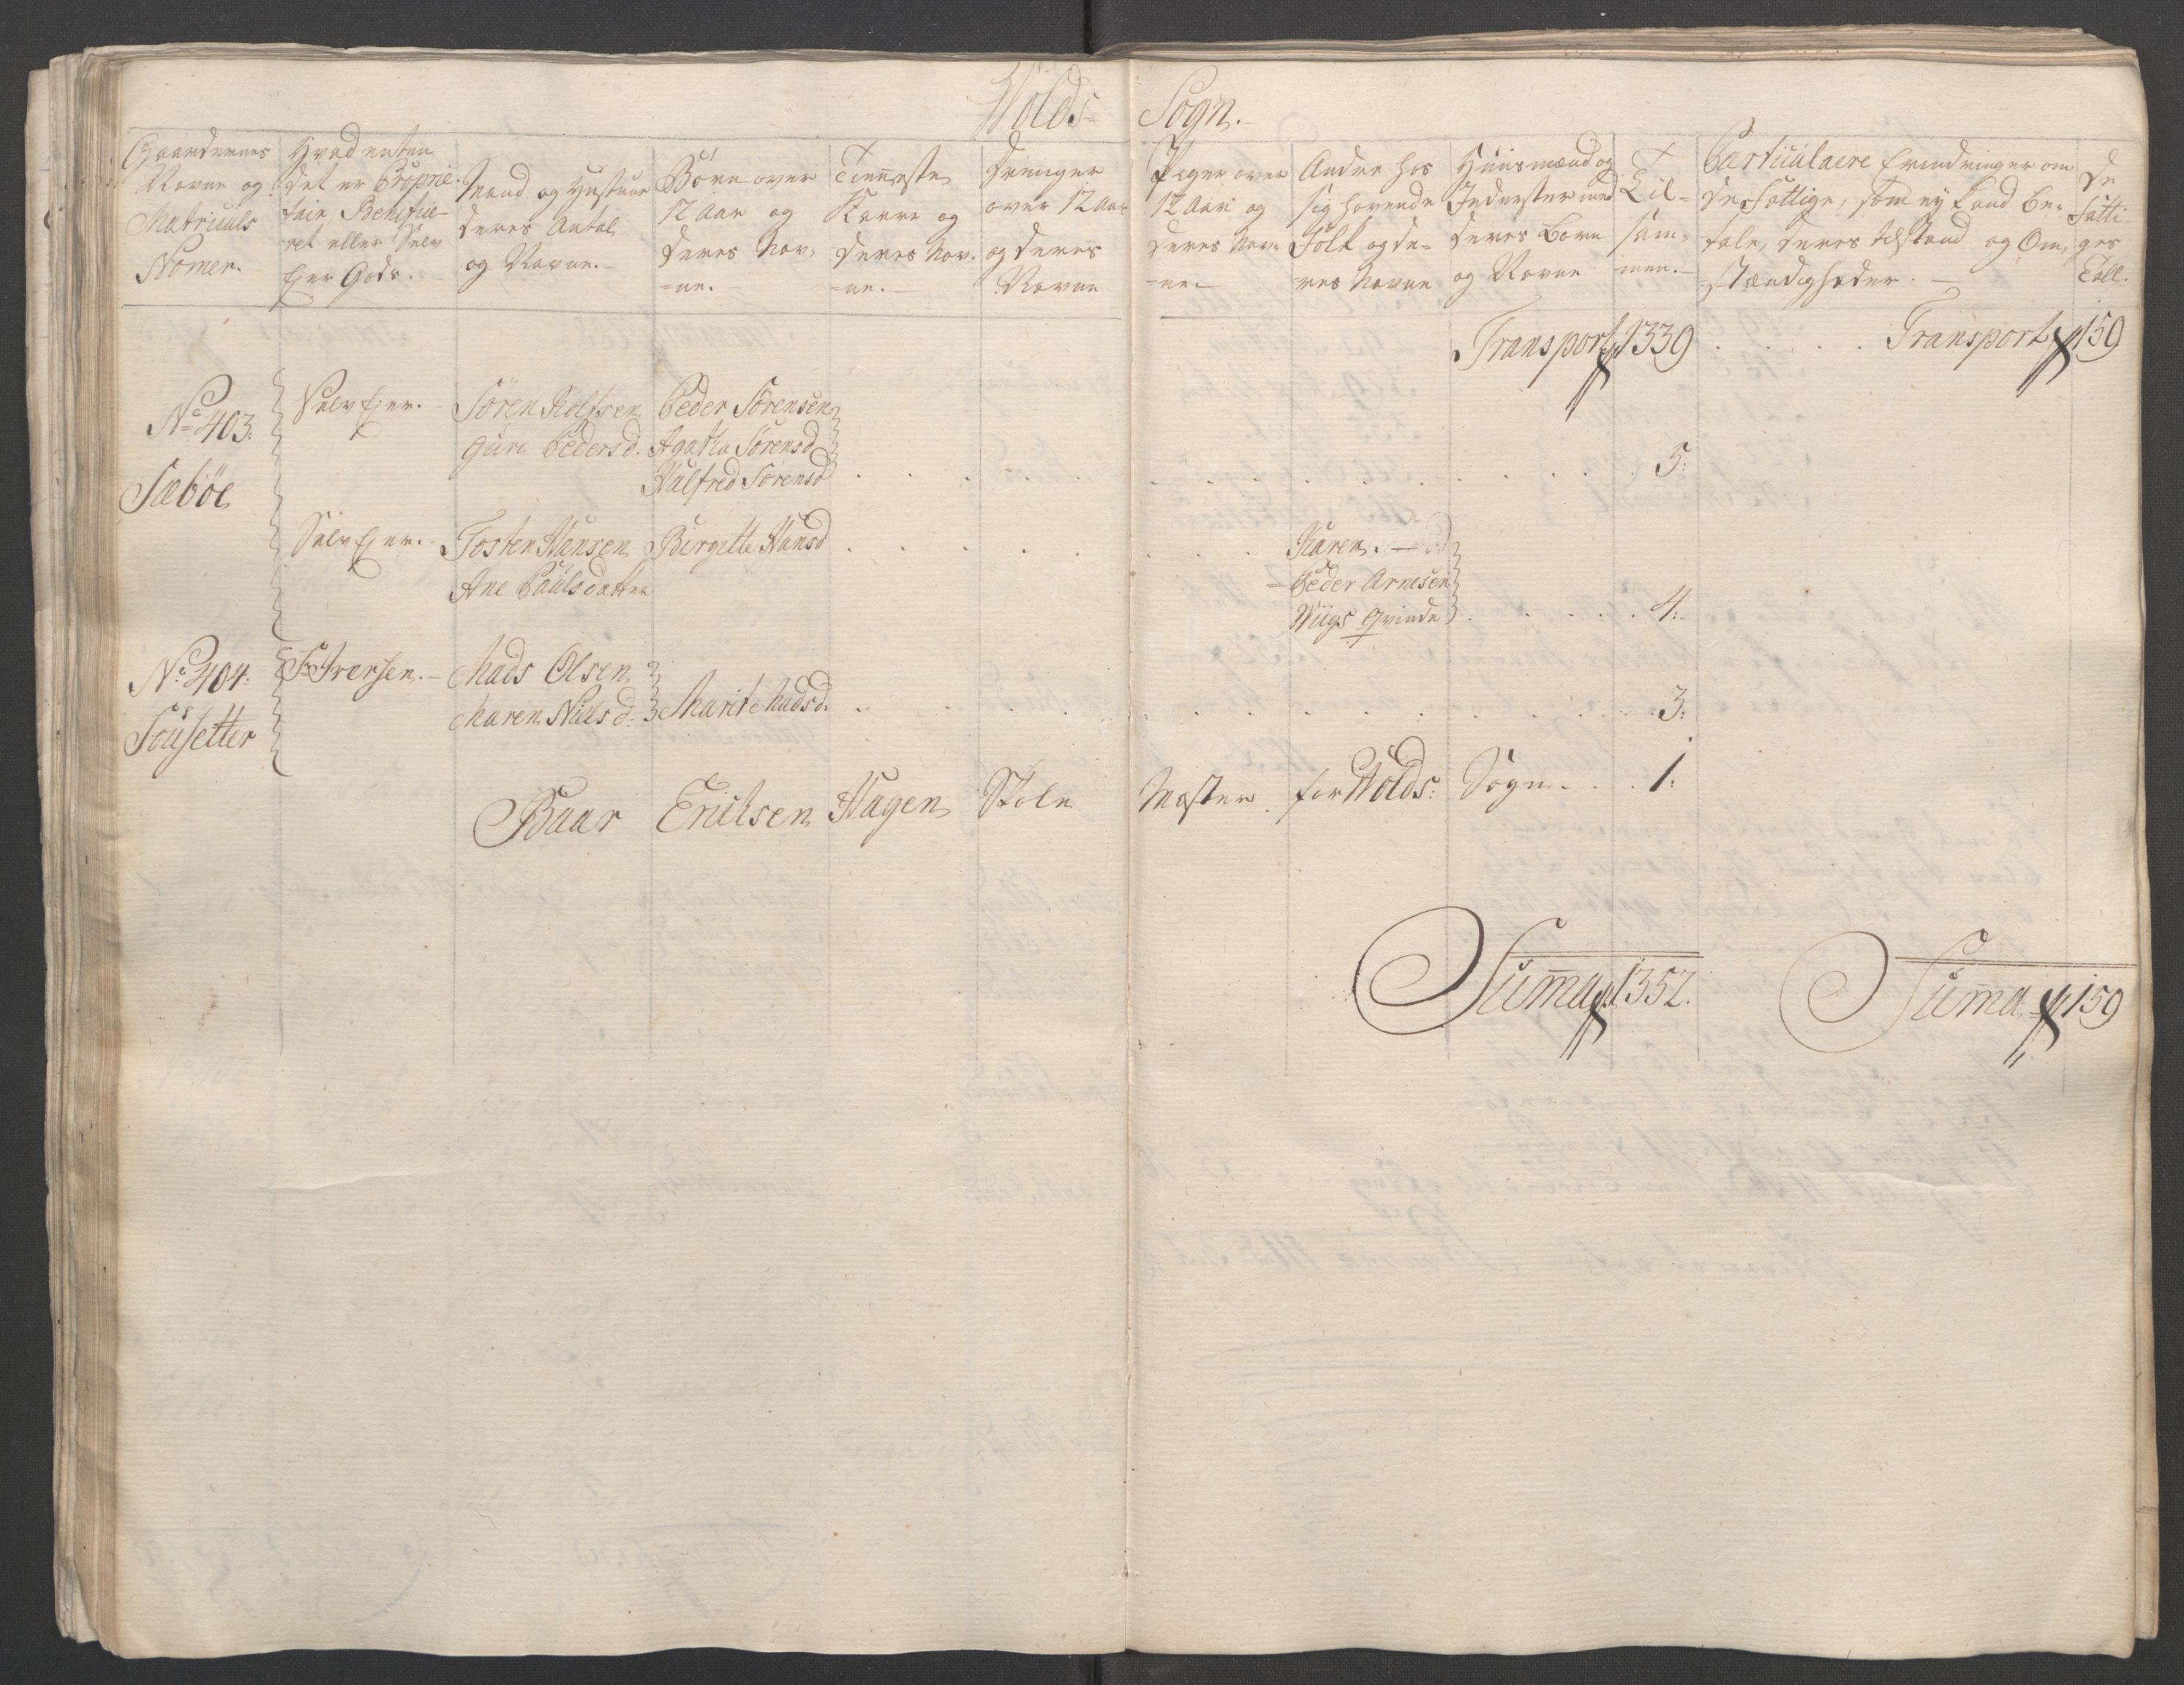 Wolds Sogn.
Gaardernes Navne og Matriculs Nomer.
Hvad enten det er Proprietair, Beneficeret eller Selv Ejer Gods.
Mand og Hustrue deres Antal og Navne.
Börn over 12 Aar og deres Navne.
Tienneste Karre og deres Navne.
Drenger over 12 Aar og deres Navne
Piger over 12 Aar og deres Navne
Andre hos sig havende Folk og deres Navne
Huusmænd og Inderster med deres Börn og Navne
Tilsammen.
Particulaere Erindringer om de Fattige, som ey kand betale, deres tilstand og Omstændigheder.
De Fattiges Tall.
Transport 1339 . . . . Transport 159
No 403. Sæböe
Selv Ejer. Sören Rolfsen Peder Sörensen
Guru Pedersd. Agatha Sörensd
Halfred Sörensd . . . . 5.
Selv Ejer. Tosten Hansen Birgitte Hansd . . . . Karen
Ane Paulsdatter Peder Arnesen
Wiigs Qvinde . . . . 4.
No 404. Sousetter
S. Iversen. Mads Olsen
Maren Niels d. Marit Madsd. . . . . 3.
Baar Ericksen Hagen Skole Mester for Wolds Sogn . . 1.
Summa 1352. Summa 159